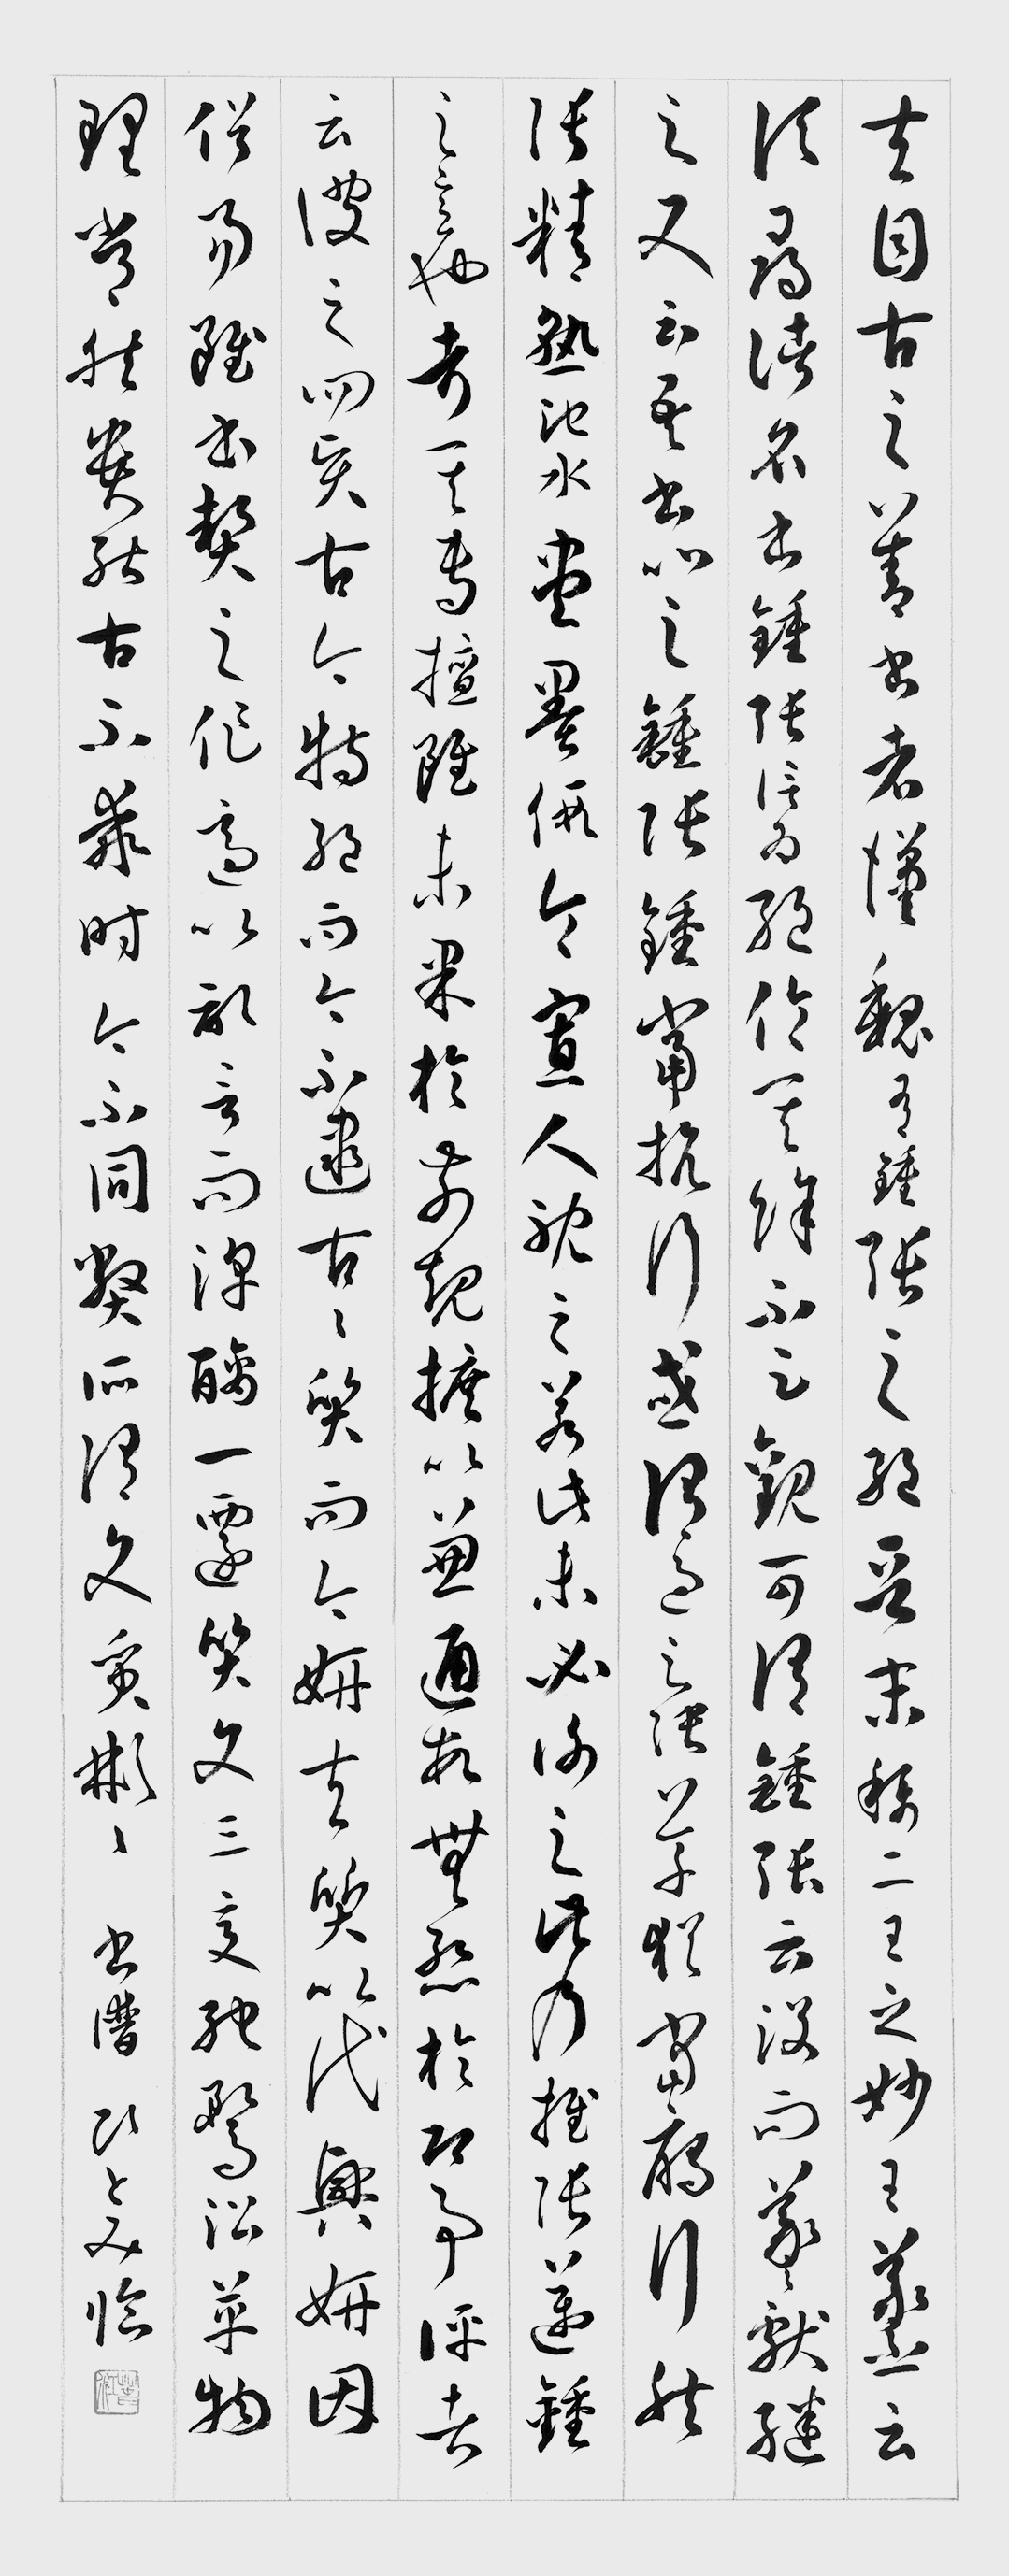 夫自古之善書者漢魏有鍾張之絶晉末稱二王之妙王羲之云
頃尋諸名書鍾張信為絶倫其餘不足觀可謂鍾張云沒而羲獻繼
之又云吾書比之鍾張鍾當抗行或謂過之張草猶當雁行然
張精熟池水盡墨假令寡人耽之若此未必謝之此乃推張邁鍾
之意也考其專擅雖未果於前規摭以兼通故無慙於即事評者
云彼之四賢古今特絶而今不逮古々質而今妍夫質以代興妍因
俗易雖書契之作適以記言而淳醨一遷質文三變馳騖沿革物
理常然貴能古不乖時今不同弊所謂文質彬々 書譜 ひとみ臨